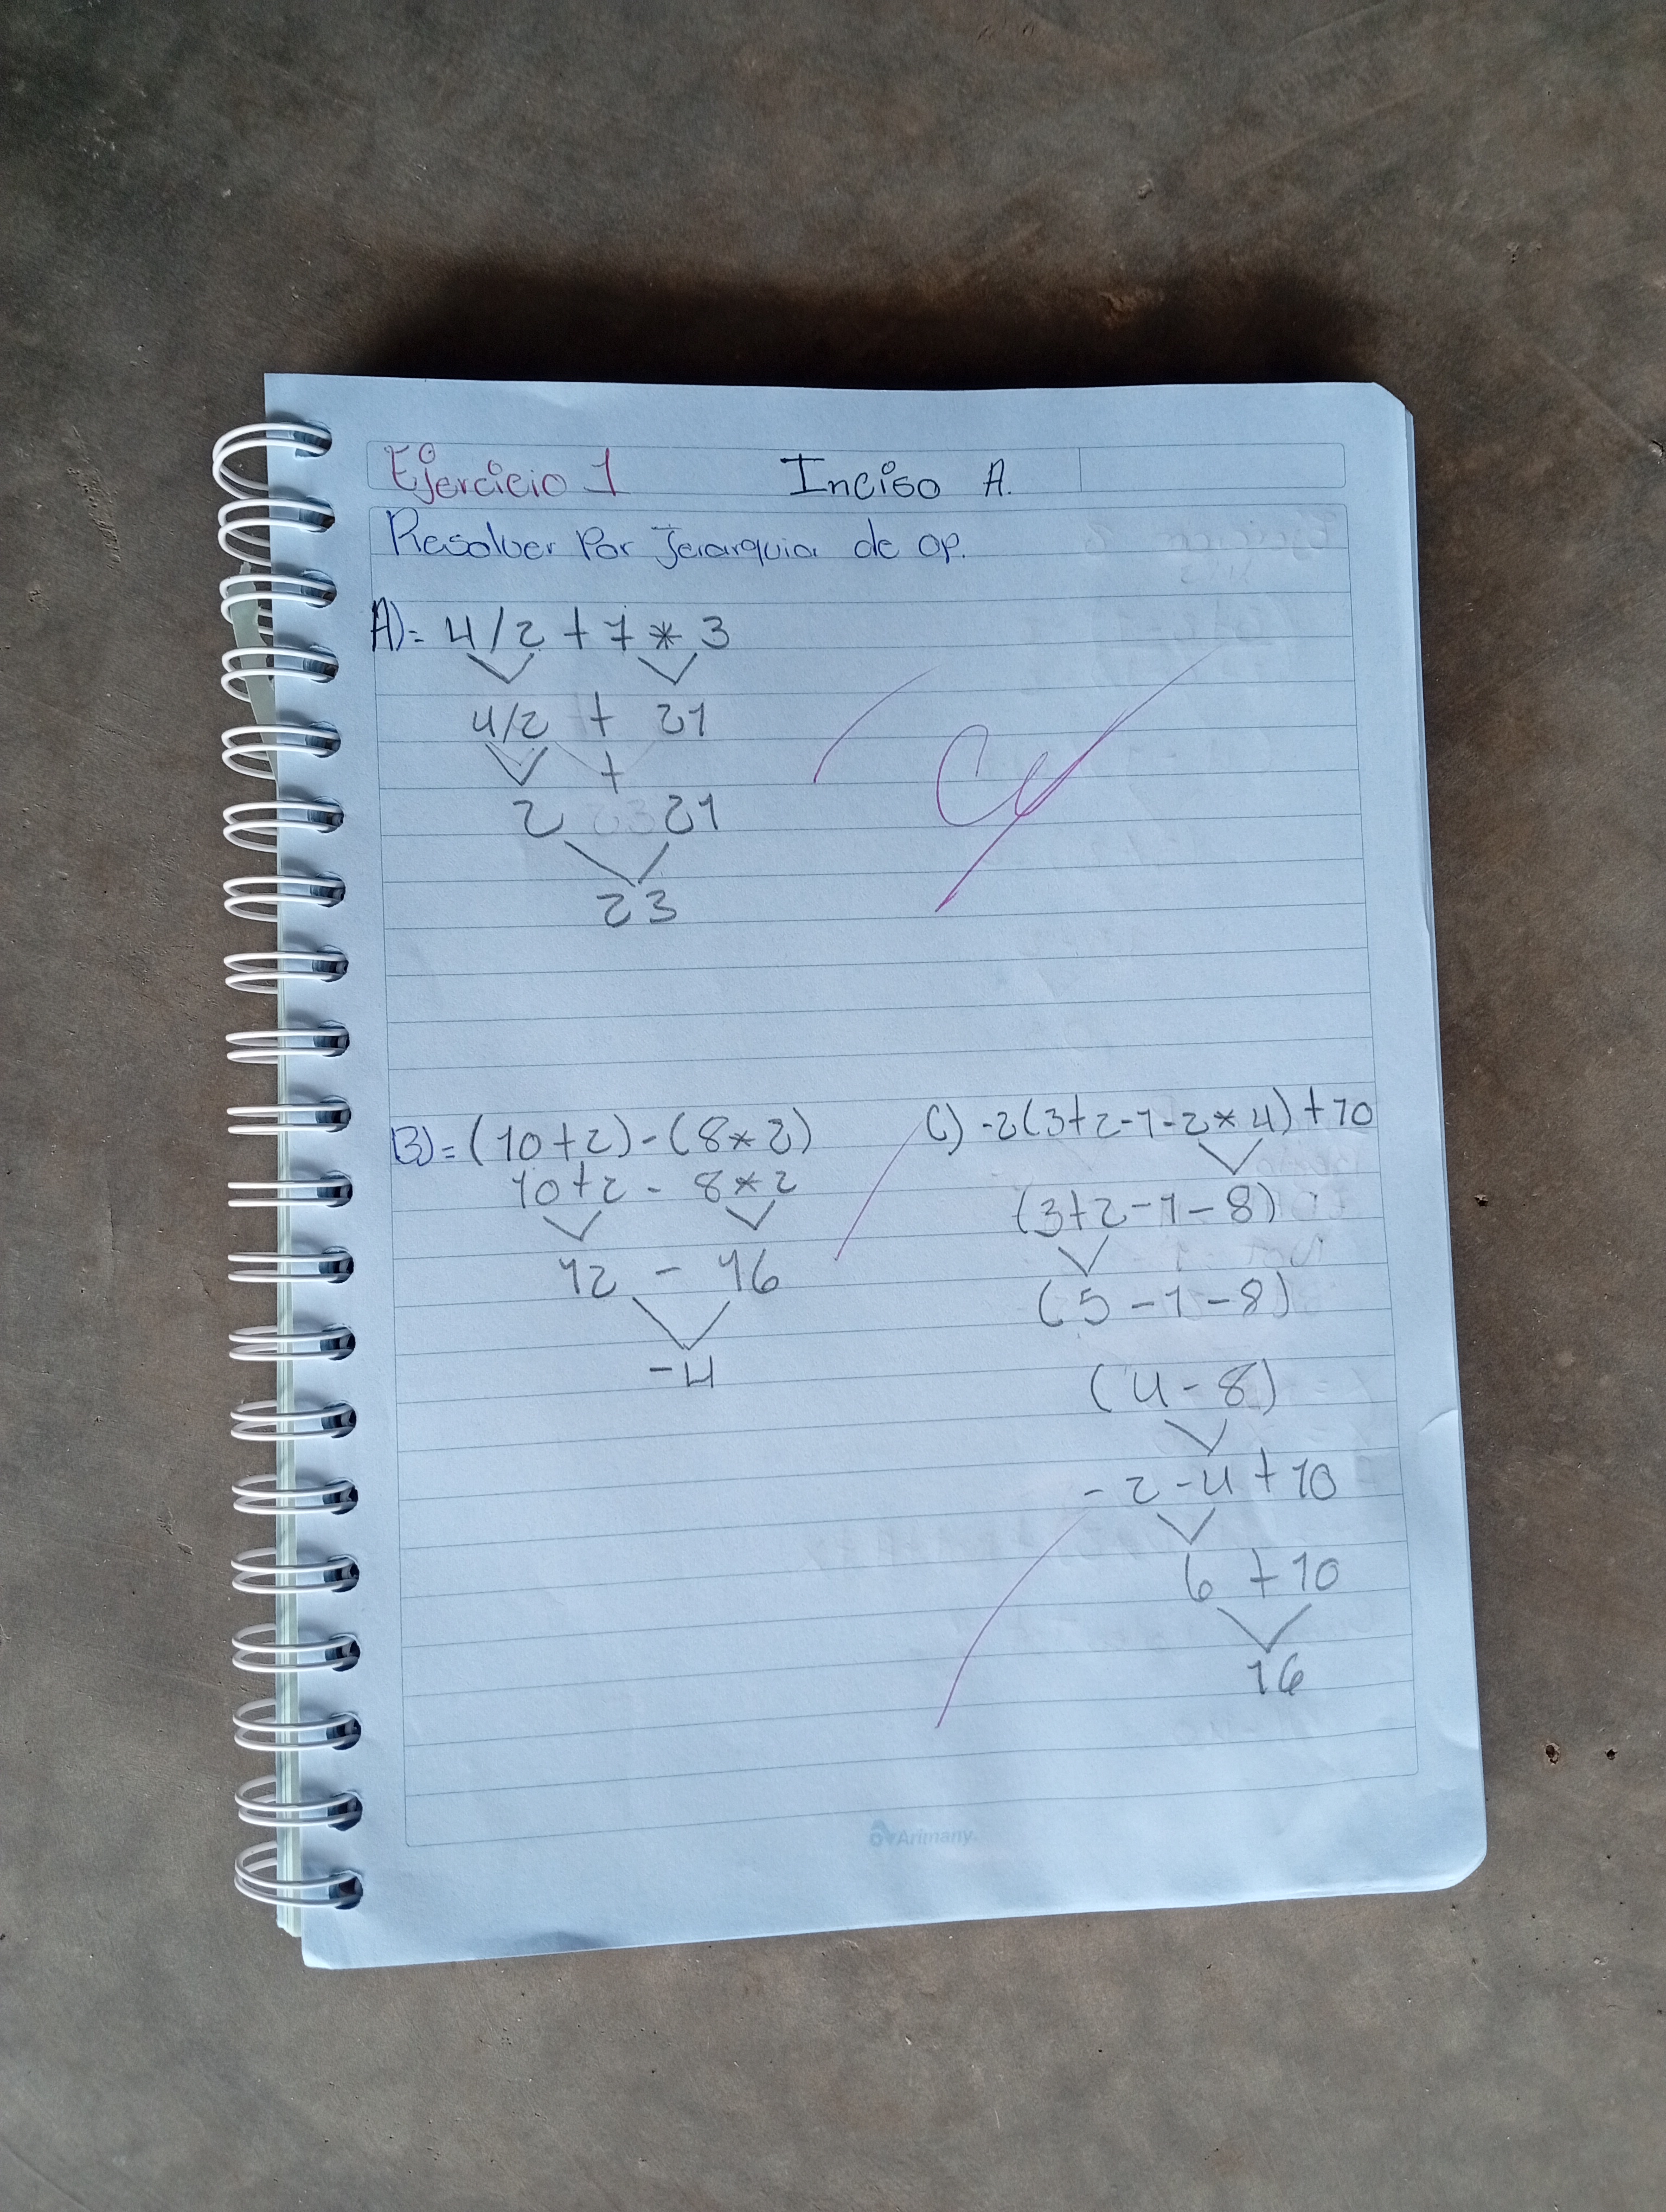 Ejercicio 1 Inciso A.
Resolver Por Jerarquia de op.
A)= 4/2 + 7 * 3
4/2 + 21
+
2 21
23
B)= (10+2)-(8*2)
10+2 - 8*2
12 - 16
-4
C) -2(3+2-1-2*4)+10
(3+2-1-8)
(5-1-8)
(4-8)
-2-4+10
6 +10
16
Arimany